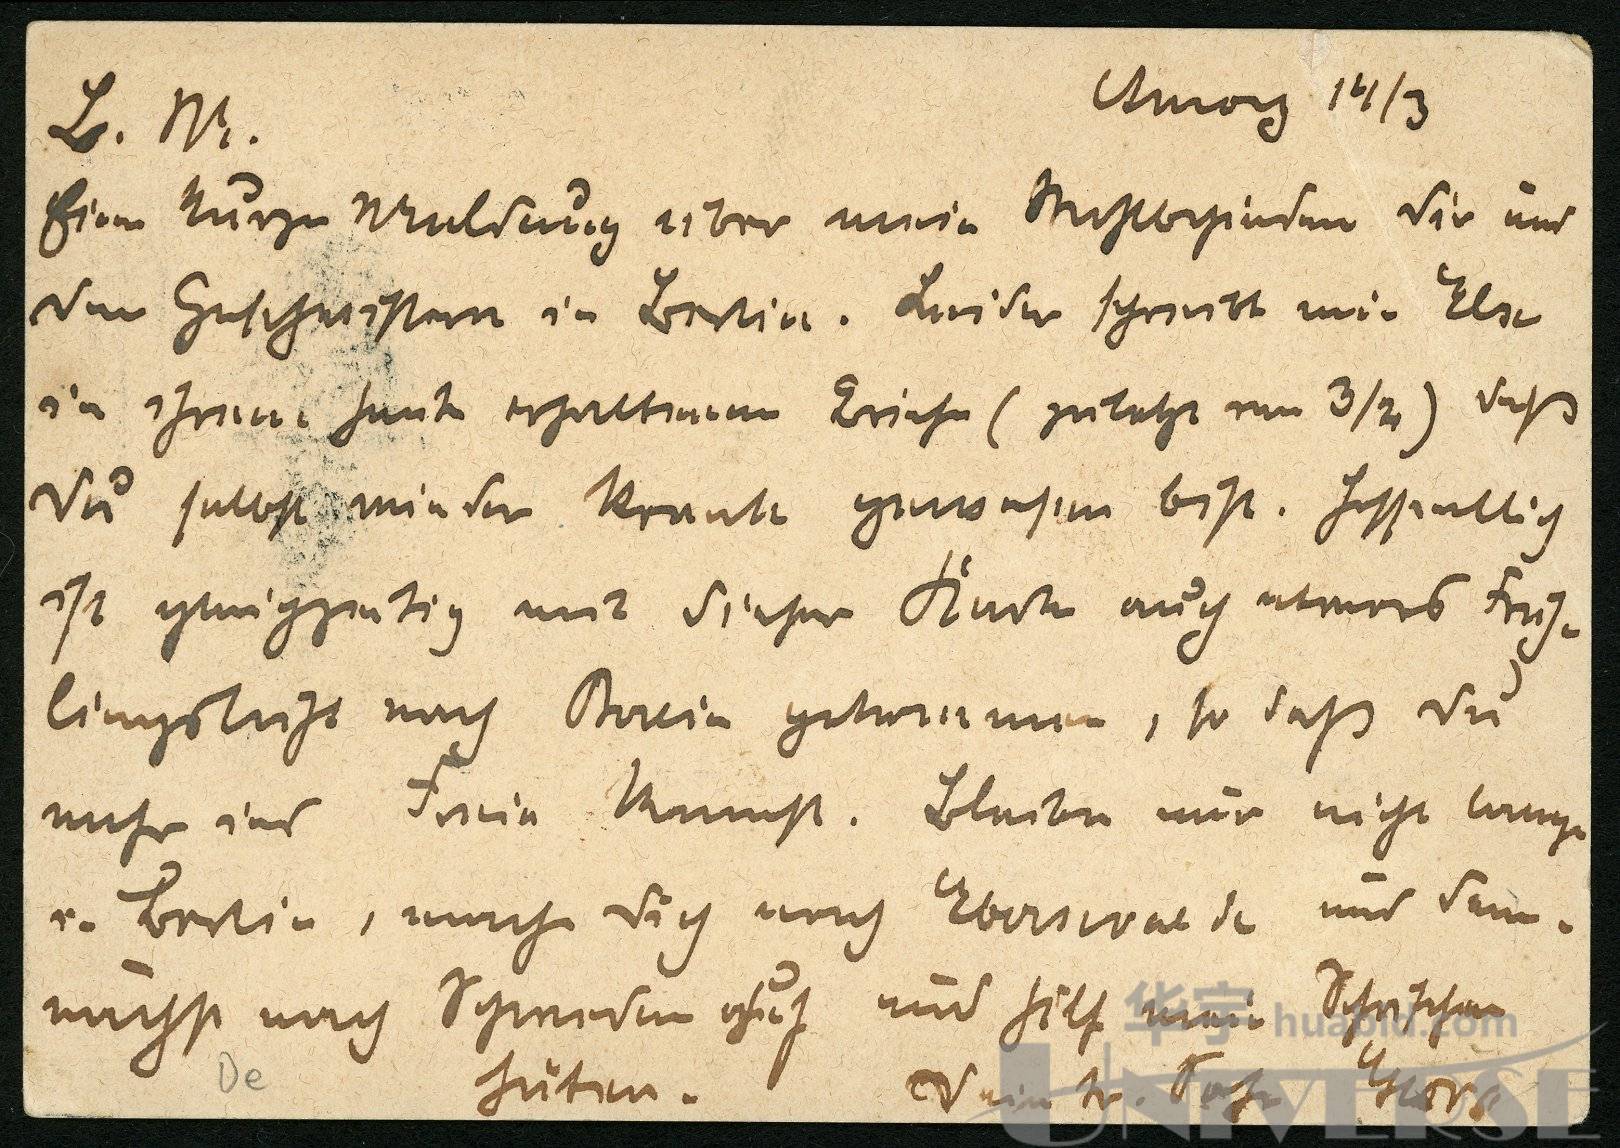 Amoy 14/3
L. M.
Eine kurze Meldung über mein Wohlbefinden dir und
den Geschwistern in Berlin. Leider schreibt mir Else
in ihrem heute erhaltenen Briefe (zuletzt vom 3/2) daß
du selbst wieder krank gewesen bist. Hoffentlich
ist gleichzeitig mit dieser Karte auch etwas Früh-
lingsluft nach Berlin gekommen, so daß du
mehr ins Freie kannst. Bleibe nur nicht lange
in Berlin, mache dich nach Eberswalde und dem-
nächst nach Schweden auf und hilf mein Schätzchen
hüten. Dein tr. Sohn Georg
De
华宇 huabid.com
UNIVERSE